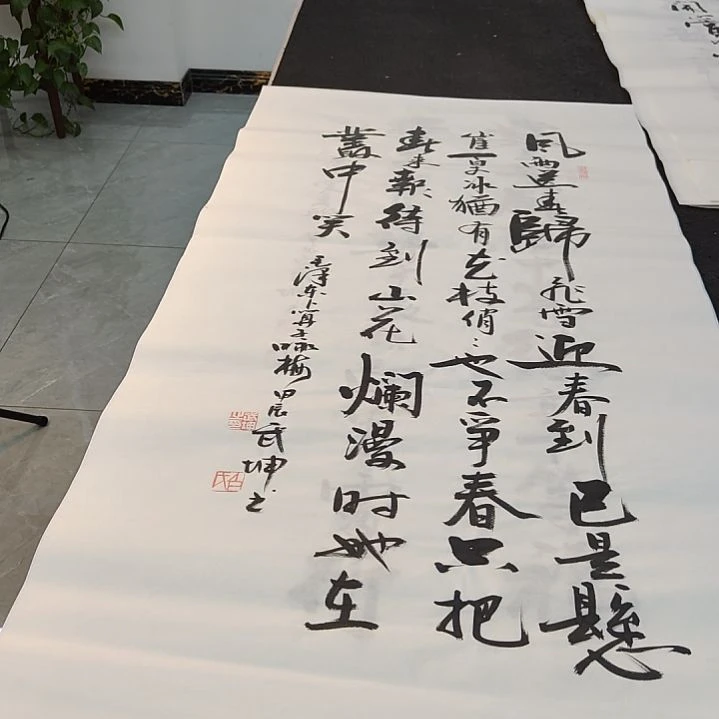 風雨送春歸飛雪迎春到已是懸
崖百丈冰猶有花枝俏々也不爭春只把
春来報待到山花爛漫时她在
叢中笑
毛澤东卜算子咏梅 甲辰武坤书